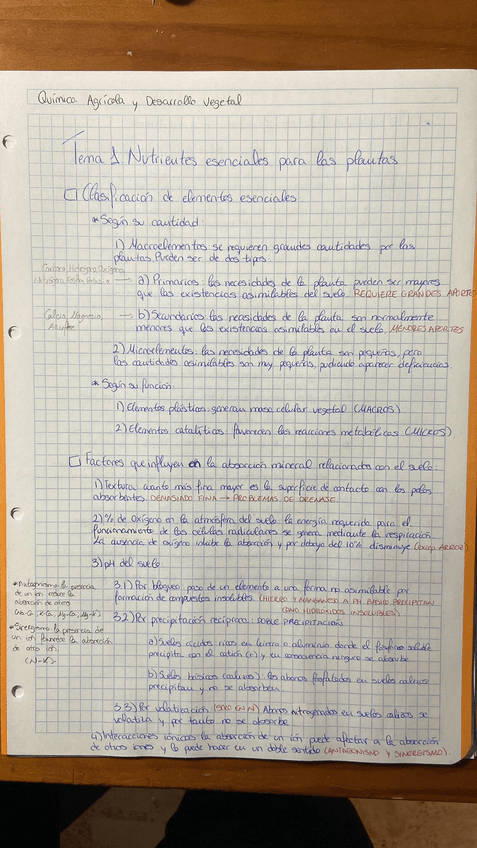 Química Agrícola y Desarrollo Vegetal
Tema 1 Nutrientes esenciales para las plantas
Clasificación de elementos esenciales
* Según su cantidad:
1) Macroelementos: se requieren grandes cantidades por las
plantas. Pueden ser de dos tipos:
Carbono, Hidrógeno, Oxígeno
a) Primarios: las necesidades de la planta pueden ser mayores
que las existencias asimilables del suelo. REQUIERE GRANDES APORTES
Calcio, Magnesio,
Azufre
b) Secundarios: las necesidades de la planta son normalmente
menores que las existencias asimilables en el suelo. MENORES APORTES
2) Microelementos: las necesidades de la planta son pequeñas, pero
las cantidades asimilables son muy pequeñas, pudiendo aparecer deficiencias.
* Según su función:
1) Elementos plásticos: generan masa celular vegetal (MACROS)
2) Elementos catalíticos: favorecen las reacciones metabólicas (MICROS)
Factores que influyen en la absorción mineral relacionados con el suelo:
1) Textura: cuanto más fina mayor es la superficie de contacto con los pelos
absorbentes. DEMASIADO FINA → PROBLEMAS DE DRENAJE
2) % de Oxígeno en la atmósfera del suelo: la energía requerida para el
funcionamiento de las células radiculares se genera mediante la respiración.
La ausencia de oxígeno inhibe la absorción y por debajo del 10% disminuye (excep. ARROZ)
3) pH del suelo
3.1) Por bloqueo: paso de un elemento a una forma no asimilable por
formación de compuestos insolubles. (HIERRO Y MANGANESO A PH BÁSICO PRECIPITAN
COMO HIDRÓXIDOS INSOLUBLES)
* Antagonismo: la presencia
de un ion inhibe la
absorción de otros
* Sinergismo: la presencia de
un ión favorece la absorción
de otro ión
(N-K)
3.2) Por precipitación recíproca: DOBLE PRECIPITACIÓN
a) Suelos ácidos ricos en hierro o aluminio donde el fósforo soluble
precipita con el catión (+) y en consecuencia ninguno se absorbe
b) Suelos básicos (calizos): los abonos fosfatados en suelos calizos
precipitan y no se absorben
3.3) Por volatilización (SOLO EN N) Abonos nitrogenados en suelos calizos se
volatiliza y por tanto no se absorbe.
4) Interacciones iónicas: la absorción de un ión puede afectar a la absorción
de otros iones y lo puede hacer en un doble sentido (ANTAGONISMO Y SINERGISMO).